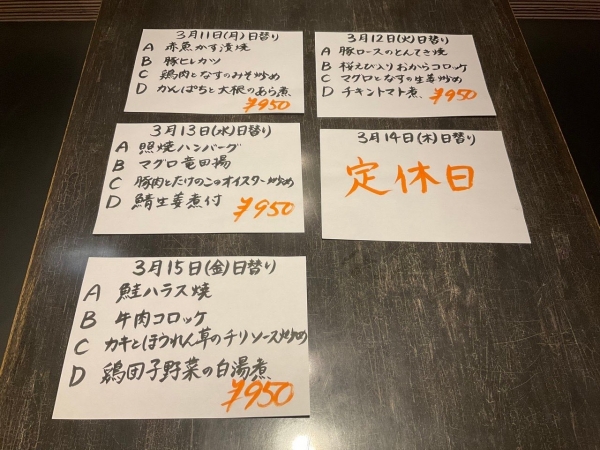 3月11日(月)日替り
A 赤魚かす漬焼
B 豚ヒレカツ
C 鶏肉となすのみそ炒め
D かんぱちと大根のあら煮
¥950
3月12日(火)日替り
A 豚ロースのとんてき焼
B 桜えび入りおからコロッケ
C マグロとなすの生姜炒め
D チキントマト煮
¥950
3月13日(水)日替り
A 照焼ハンバーグ
B マグロ竜田揚
C 豚肉とたけのこのオイスター炒め
D 鯖生姜煮付
¥950
3月14日(木)日替り
定休日
3月15日(金)日替り
A 鮭ハラス焼
B 牛肉コロッケ
C カキとほうれん草のチリソース炒め
D 鶏団子野菜の白湯煮
¥950